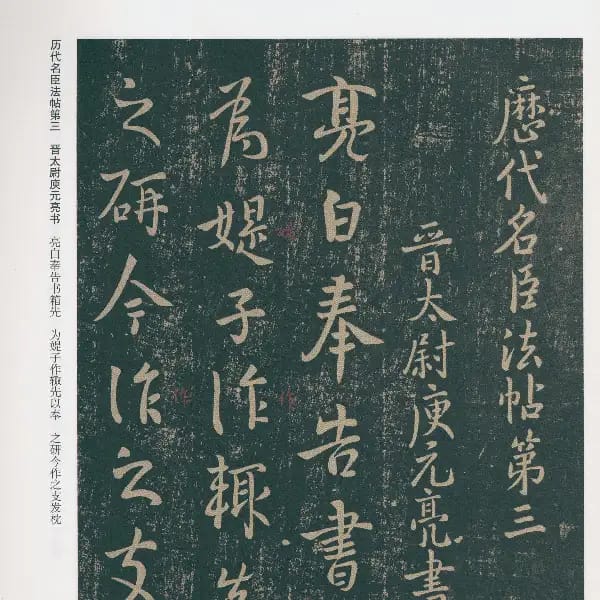 歷代名臣法帖第三
晋太尉庾元亮書
亮白奉告書
為媞子作輙先
之研今作之支
历代名臣法帖第三 晋太尉庾元亮书 亮白奉告书箱先 为媞子作辄先以奉 之研今作之支发枕